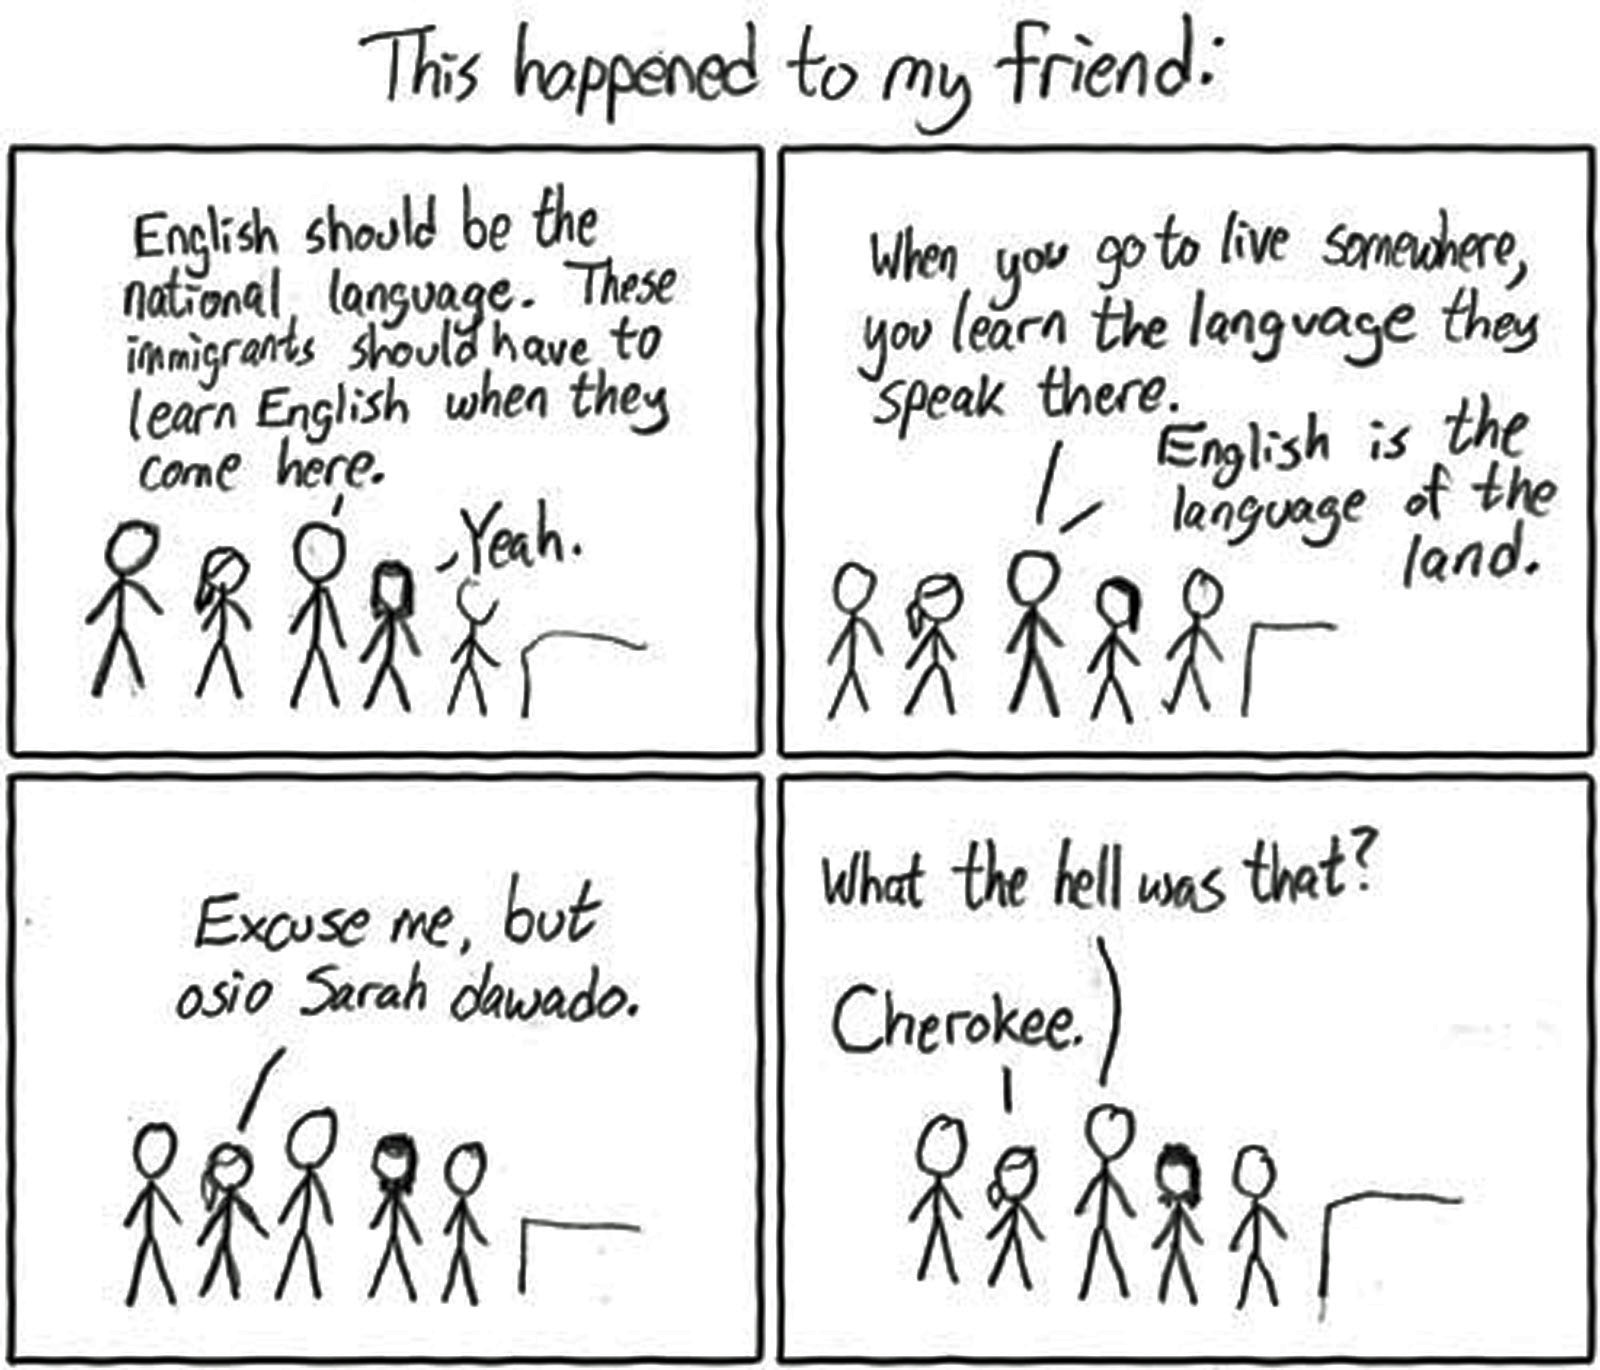 This happened to my friend:
English should be the
national language. These
immigrants should have to
learn English when they
come here.
Yeah.
When you go to live somewhere,
you learn the language they
speak there.
English is the
language of the
land.
Excuse me, but
osio Sarah dawado.
What the hell was that?
Cherokee.